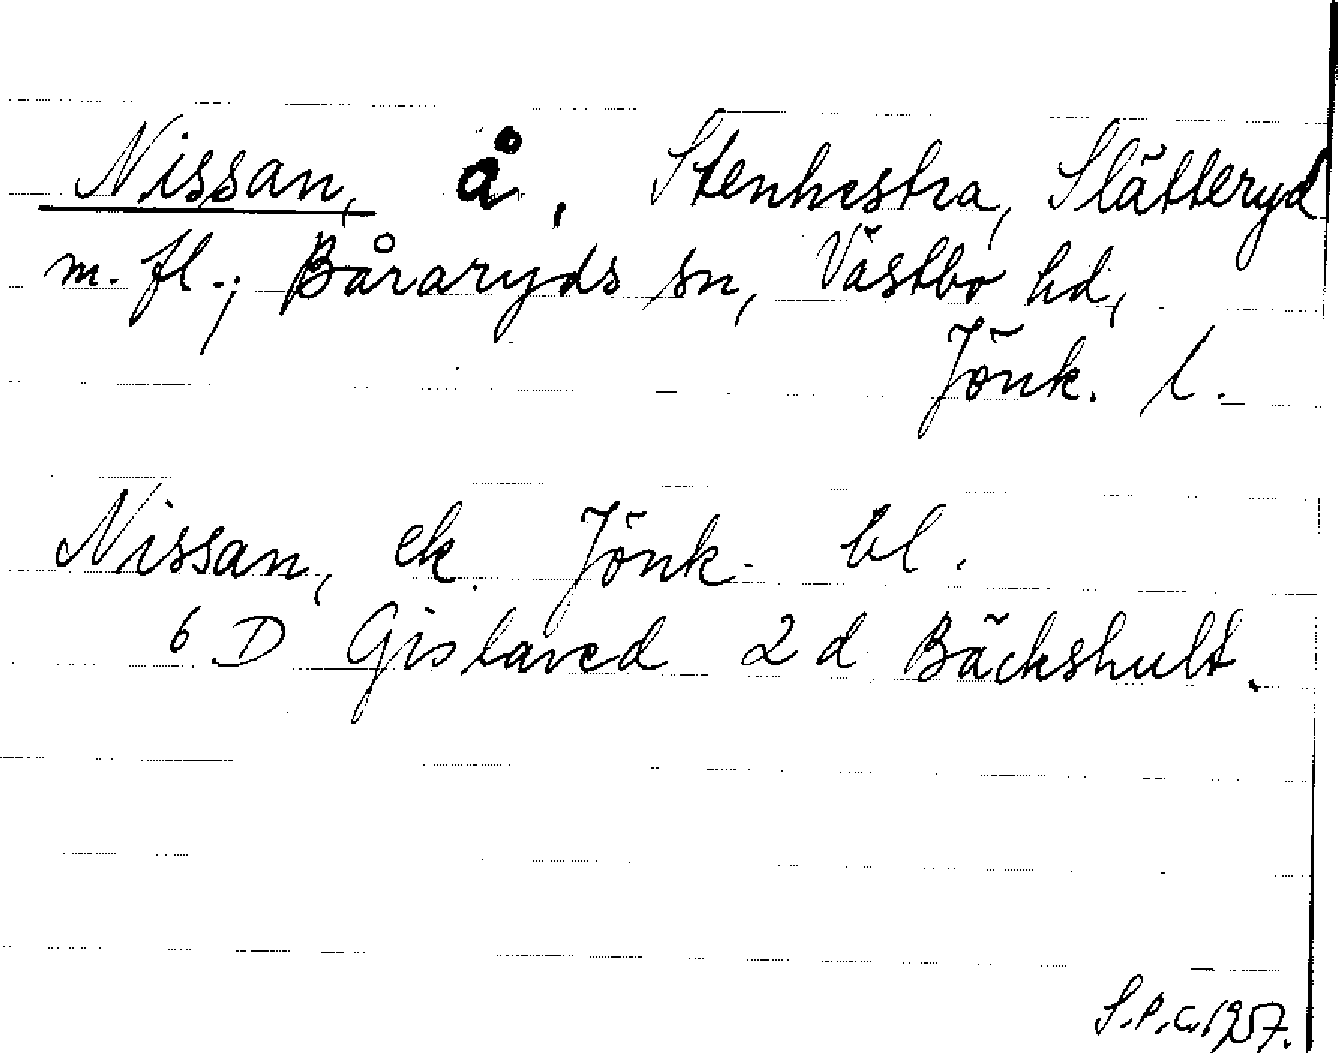 Nissan, å, Stenhestra, Slätteryd
m. fl.; Båraryds sn, Västbo hd,
Jönk. l.
Nissan, ek. Jönk. bl.
6 D Gislaved 2 d Bäckshult.
S.P.C. 1957.